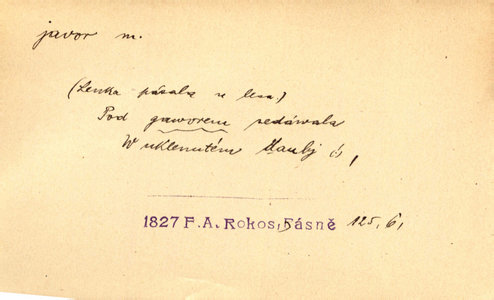 javor m.
(Lenka pásala u lesa.)
Pod gaworem sedáwala
W uklenutém
1827 F.A. Rokos, Básně 125, 6,